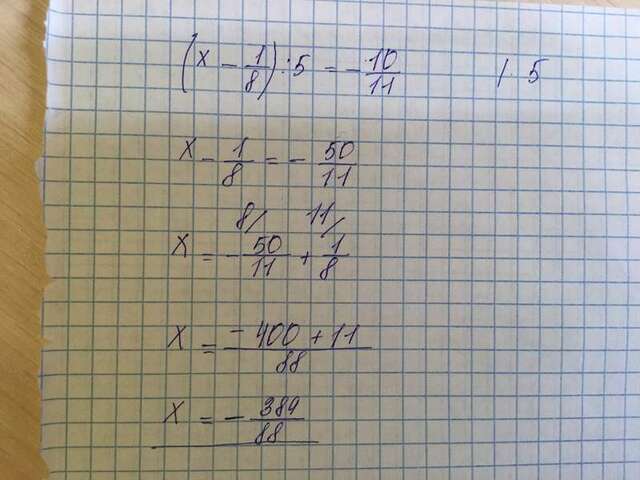 (x - 1/8) : 5 = - 10/11 | · 5
x - 1/8 = - 50/11
8/ 11/
x = - 50/11 + 1/8
x = -400 + 11/88
x = - 389/88